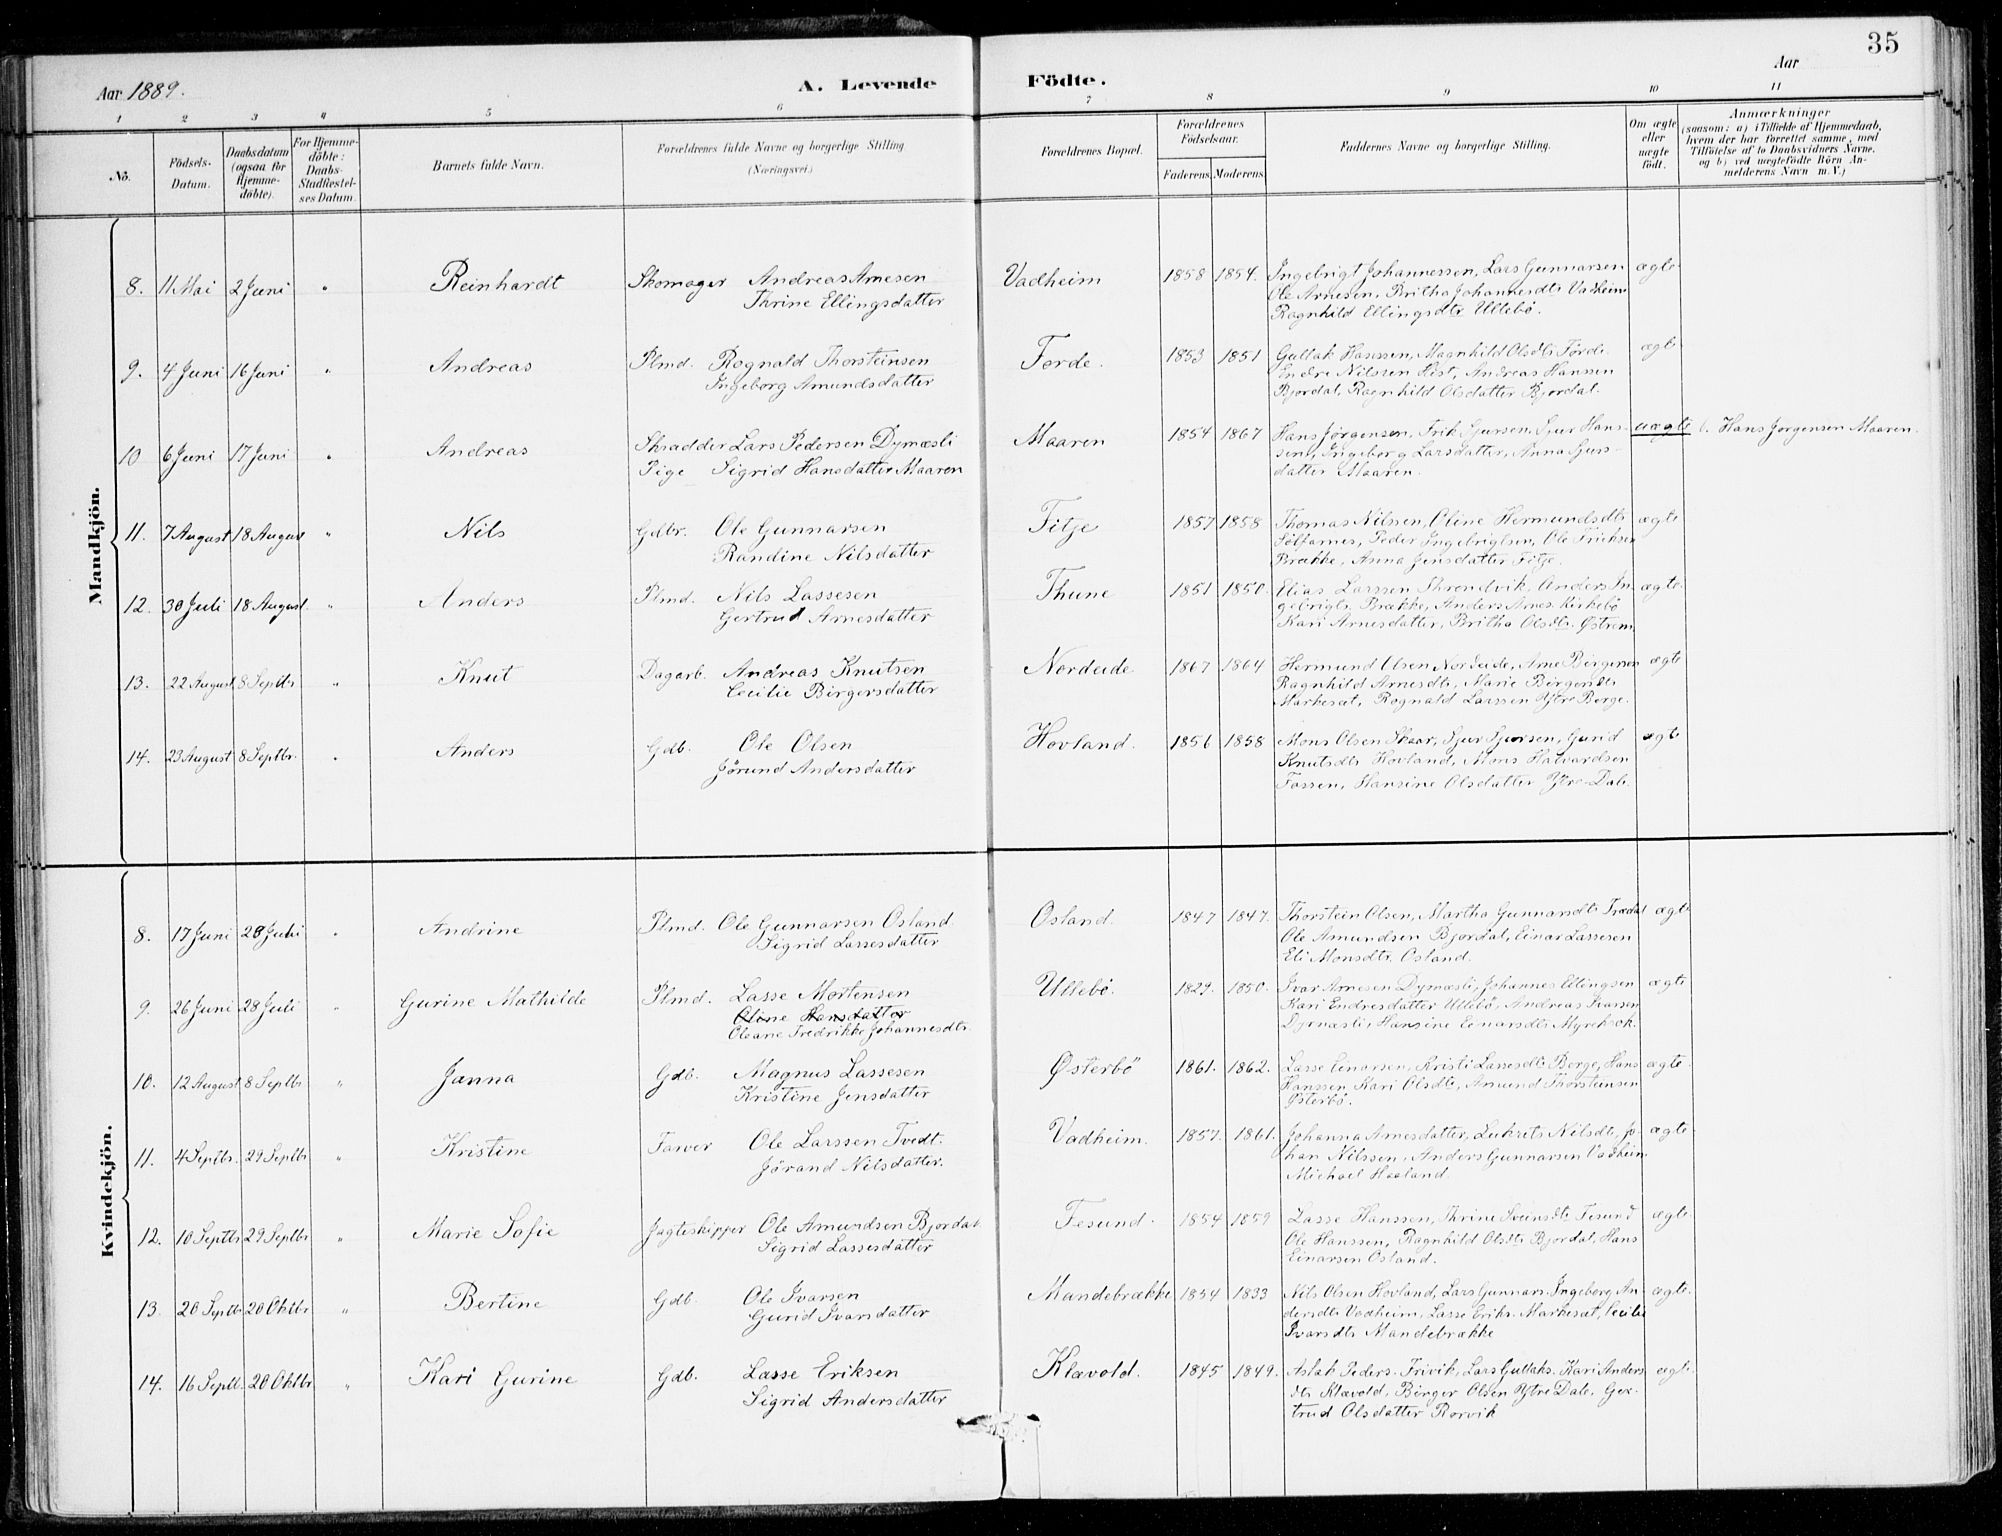 35
Aar 1889. A. Levende Födte. Aar
1 2 3 4 5 6 7 8 9 10 11
No. Födsels-Datum. Daabsdatum (ogsaa för Hjemmedöbte). For Hjemmedöbte: Daabs-Stadfæstelses Datum. Barnets fulde Navn. Forældrenes fulde Navne og borgerlige Stilling (Næringsvei.) Forældrenes Bopæl. Forældrenes Födselsaar. Faderens Moderens Faddernes Navne og borgerlige Stilling. Om ægte eller uægte födt. Anmærkninger (saasom: a) i Tilfælde af Hjemmedaab, hvem der har forrettet samme, med Tilföielse af to Daabsvidners Navne, og b) ved uægtefödte Börn Anmelderens Navn m. V.)
Mandkjön.
8. 11 Mai 2 Juni " Reinhardt Skomager Andreas Arnesen Vadheim 1858 1854. Ingebrigt Johannessen, Lars Gunnarsen ægte
Thrine Ellingsdatter Ole Arnesen, Britha Johannesdtr Vadheim
Ragnhild Ellingsdtr Ullebö.
9. 4 Juni 16 Juni " Andreas Plmd. Rognald Thorsteinsen Förde. 1853 1851 Gullak Hanssen, Magnhild Olsdtr Förde ægte
Ingeborg Amundsdatter Endre Nilssen Hist, Andreas Hanssen
Bjordal, Ragnhild Olsdatter Bjordal.
10 6 Juni 17 Juni " Andreas Skradder Lars Pedersen Dymæsli Maaren 1854 1867 Hans Jörgensen, Erik Sjursen, Sjur Hans- uægte b. Hans Jörgensen Maaren.
Pige Sigrid Hansdatter Maaren sen, Ingeborg Larsdatter, Anna Sjurs-
datter Maaren.
11. 7 August 18 August " Nils Gdbr. Ole Gunnarsen Fitje 1857 1858 Thomas Nilssen, Oline Hermundsdtr ægte
Randine Nilsdatter Sölfarnes, Peder Ingebrigtsen, Ole Eriksen
Brække, Anna Jensdatter Fitje.
12. 30 Juli 18 August. " Anders Plmd. Nils Lassesen Thune 1851 1850. Elias Larssen Skrondvik, Anders In- ægte.
Gertrud Arnesdatter gebrigts. Brække, Anders Arnes. Kirkebö
Kari Arnesdatter, Britha Olsdtr. Østrem.
13. 22 August 8 Septbr " Knut Dagarb. Andreas Knutsen Nordeide 1867 1864 Hermund Olsen Nordeide, Arne Birgersen ægte
Cecilie Birgersdatter Ragnhild Arnesdtr, Marie Birgersdtr
Markesæt, Rognald Larssen Ytre Berge.
14. 23 August 8 Septbr. " Anders Gdb. Ole Olsen Hovland. 1856 1858 Mons Olsen Skaar, Sjur Sjursen, Gurid ægte
Jörund Andersdatter Knutsdtr Hovland, Mons Halvardsen
Fossen, Hansine Olsdatter Ytre-Dale.
Kvindekjön.
8. 17 Juni 28 Juli " Andrine Plmd. Ole Gunnarsen Osland Osland. 1847 1847. Thorstein Olsen, Martha Gunnarsdtr Trædal ægte
Sigrid Lassesdatter Ole Amundsen Bjordal, Einar Lassesen
Eli Monsdtr. Osland.
9. 26 Juni 28 Juli " Gurine Mathilde Plmd. Lasse Mortensen Ullebö. 1829. 1850. Ivar Arnesen Dymæsli, Johannes Ellingsen ægte
Oline Hansdatter Kari Endresdatter Ullebö, Andreas Ivarsen
Oleane Fredrikke Johannesdtr. Dymæsli, Hansine Einarsdtr Myrekrok.
10. 12 August 8 Septbr " Janna Gdb. Magnus Lassesen Østerbö 1861. 1862. Lasse Einarsen, Kristi Lassesdtr Berge, Hans ægte.
Kristine Jensdatter Hanssen, Kari Olsdtr, Amund Thorsteinsen
Østerbö.
11. 4 Septbr. 29 Septbr " Kristine Farver Ole Larssen Tvedt. Vadheim. 1857. 1861. Johanna Arnesdatter, Lukrets Nilsdtr, Jo- ægte
Jörand Nilsdatter. han Nilssen, Anders Gunnarsen Vadheim
Michael Haaland.
12. 10 Septbr 29 Septbr " Marie Sofie Jagteskipper Ole Amundsen Bjordal Fesund. 1854 1859 Lasse Hanssen, Thrine Sveinsdtr Fesund ægte.
Sigrid Lassesdatter Ole Hanssen, Ragnhild Olsdtr Bjordal, Hans
Einarsen Osland.
13. 20 Septbr 20 Oktbr " Bertine Gdb. Ole Ivarsen Mandebrække 1854 1833 Nils Olsen Hovland, Lars Gunnars. Ingeborg An- ægte.
Gurid Ivarsdatter dersdtr Vadheim, Lasse Eriks. Markesæt, Cecilie
Ivarsdtr Mandebrække
14. 16 Septb. 20 Oktbr " Kari Gurine Gdb. Lasse Eriksen Klævold. 1845 1849. Aslak Peders. Frivik, Lars Gullaks. Kari Anders ægte.
Sigrid Andersdatter dtr Klævold, Birger Olsen Ytre Dale, Ger-
trud Olsdatter Rorvik